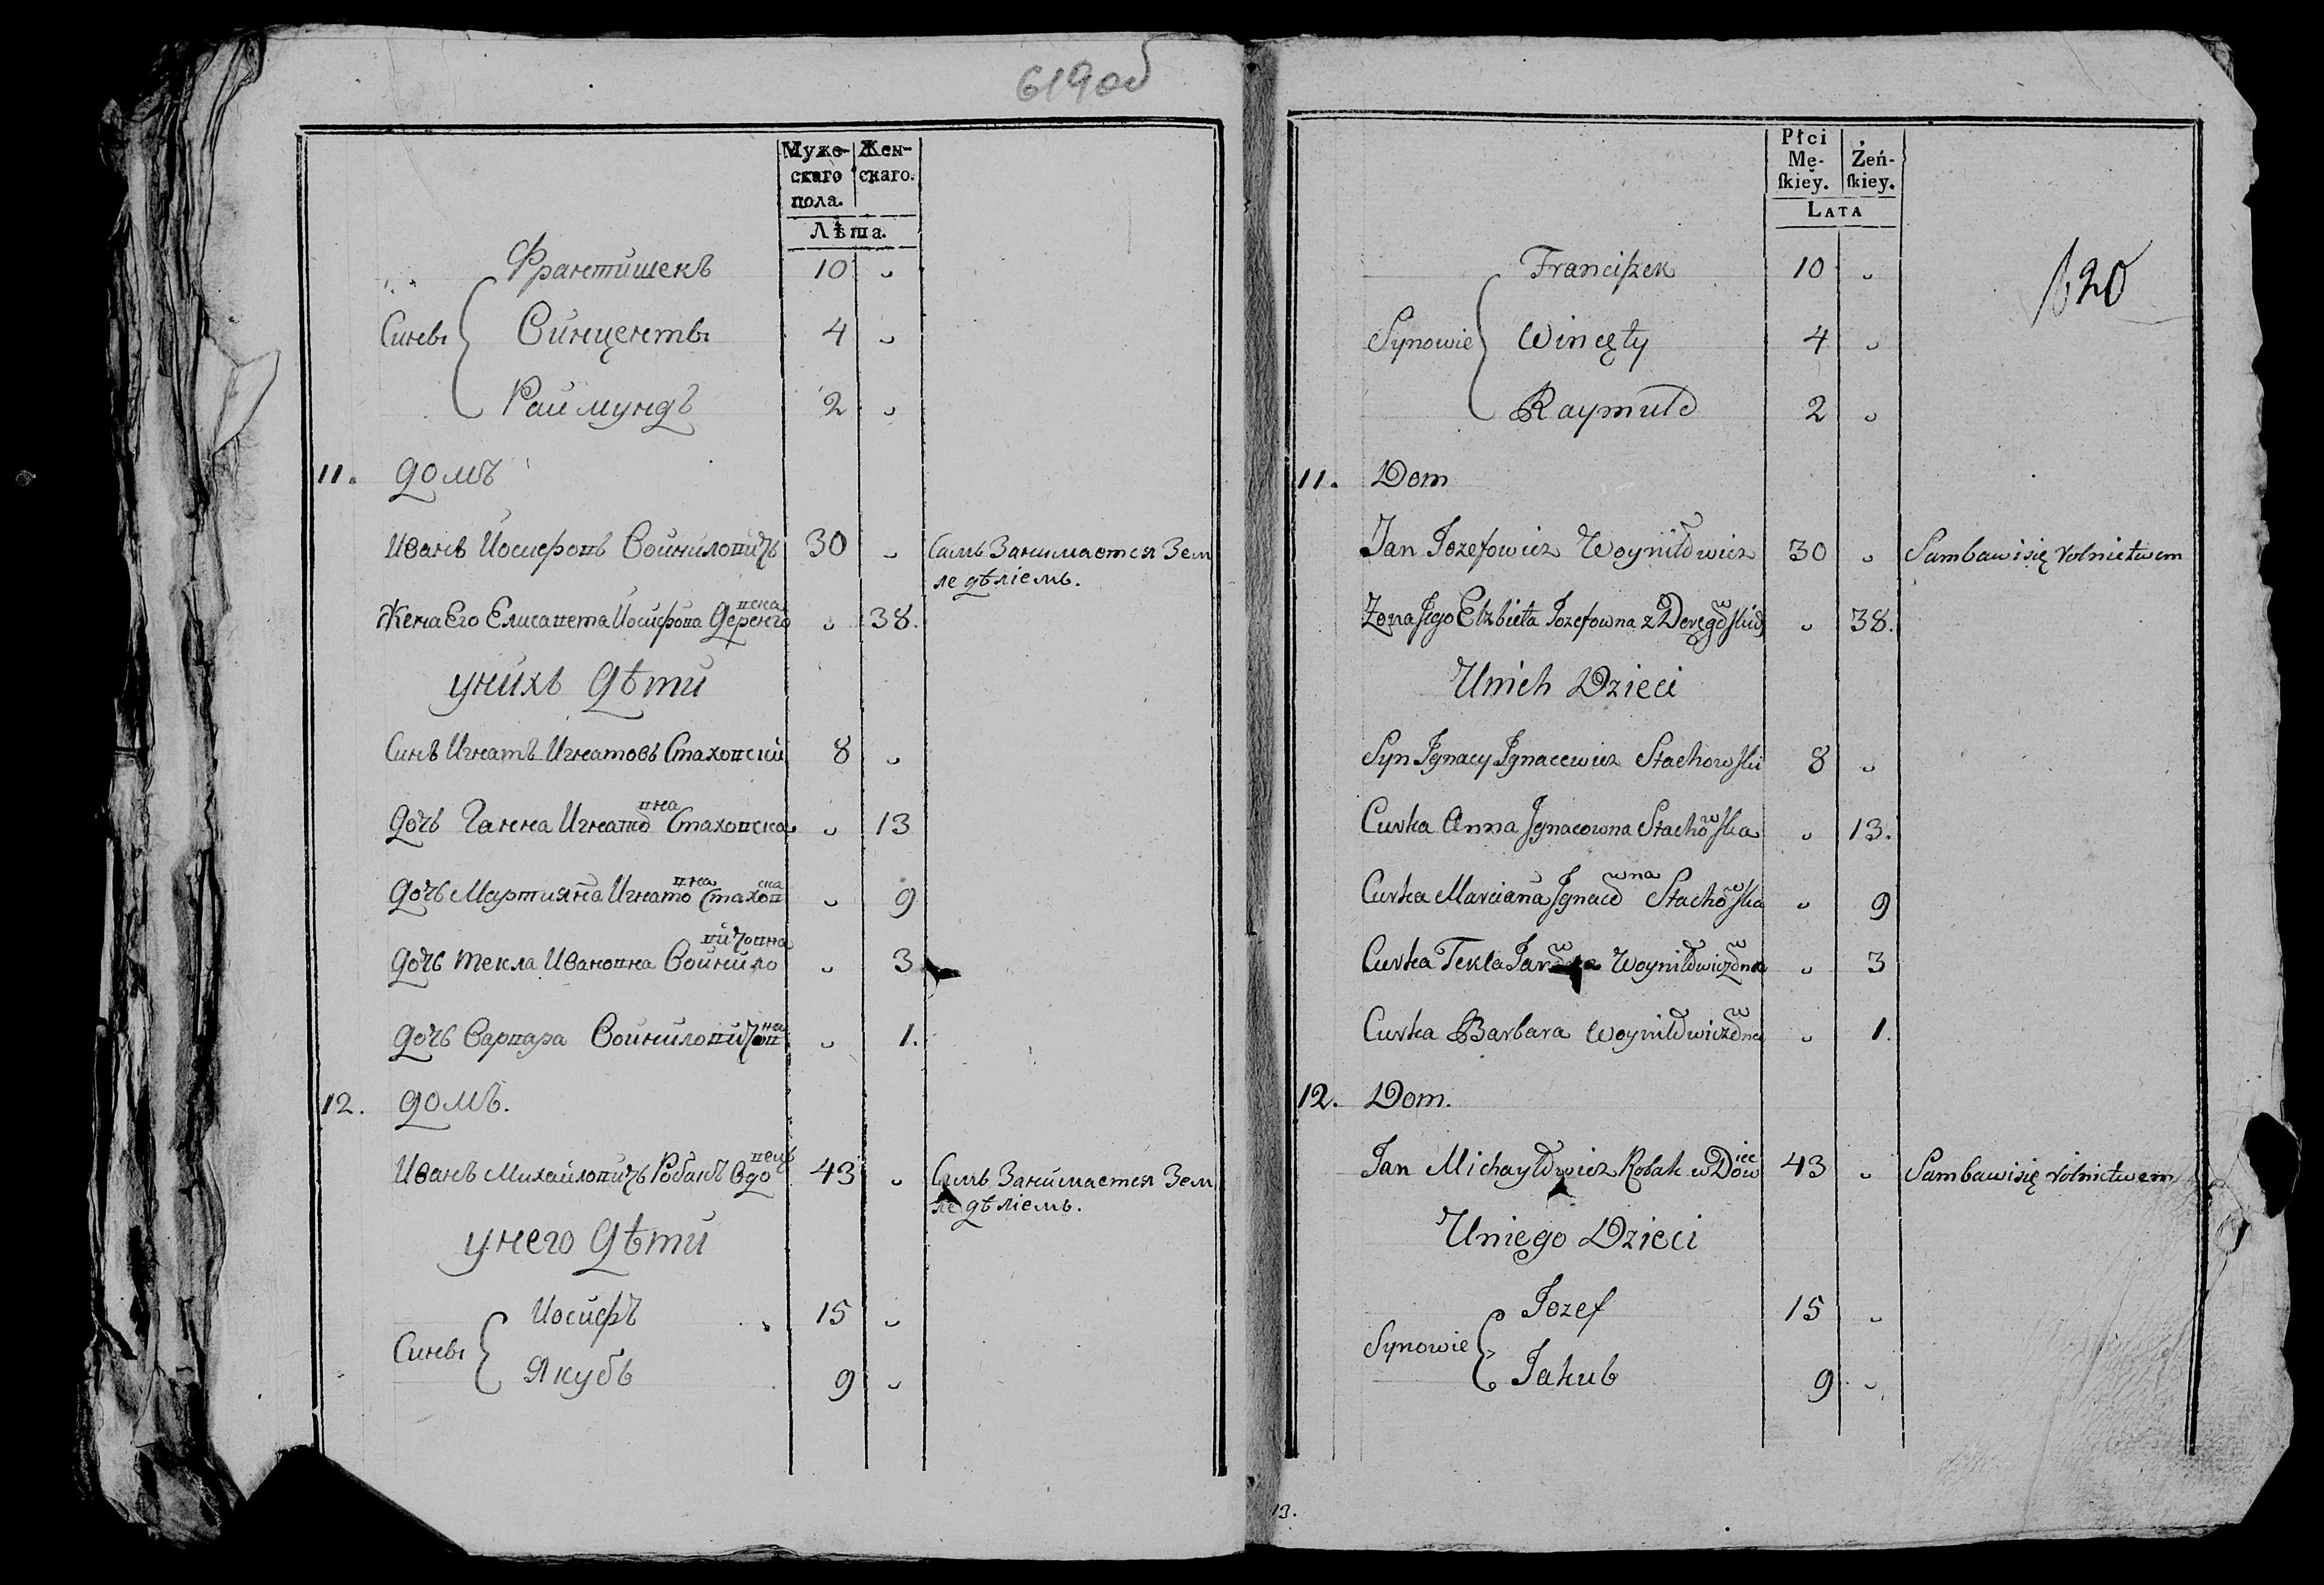 619об
Муже-
скаго
пола.
Жен-
скаго.
Лѣта.
Франтишекъ 10 "
Синеы Винценты 4 "
Раймундъ 2 "
11. Домъ
Иванъ Иосифовъ Войниловичъ 30 " Самъ Занимается Зем
ледѣліемъ.
Жена Его Елисавета Иосифова Деренговска " 38.
у нихъ Дѣти
Синъ Игнатъ Игнатовъ Стаховский 8 "
Дочъ Ганна Игнатовна Стаховска " 13
Дочъ Мартияна Игнатовна Стаховска " 9
Дочъ Текла Ивановна Войниловичовна " 3
Дочъ Варвара Войниловичовна " 1.
12. Домъ.
Иванъ Михайловичъ Робакъ Вдовецъ 43 " Самъ Занимается Зем
ледѣліемъ.
у него Дѣти
Иосифъ 15 "
Синеы
Якубъ 9 "
Płci
Mę-
ſkiey.
Żeń-
ſkiey.
LATA
620
Franciszek 10 "
Synowie Wincęty 4 "
Raymuld 2 "
11. Dom
Jan Jozefowicz Woyniłowicz 30 " Sam bawi się rolnictwem
Zona Jego Elzbieta Jozefowna z Deręgowskich " 38.
U nich Dzieci
Syn Ignacy Ignacewicz Stachowski 8 "
Curka Anna Ignacowna Stachowska " 13.
Curka Marciana Ignacowna Stachowska " 9
Curka Tekla Janowna Woyniłowiczowna " 3
Curka Barbara Woyniłowiczowna " 1.
12. Dom.
Jan Michayłowicz Robak wDowiec 43 " Sam bawi się rolnictwem
U niego Dzieci
Jozef 15 "
Synowie
Jakub 9 "
13.